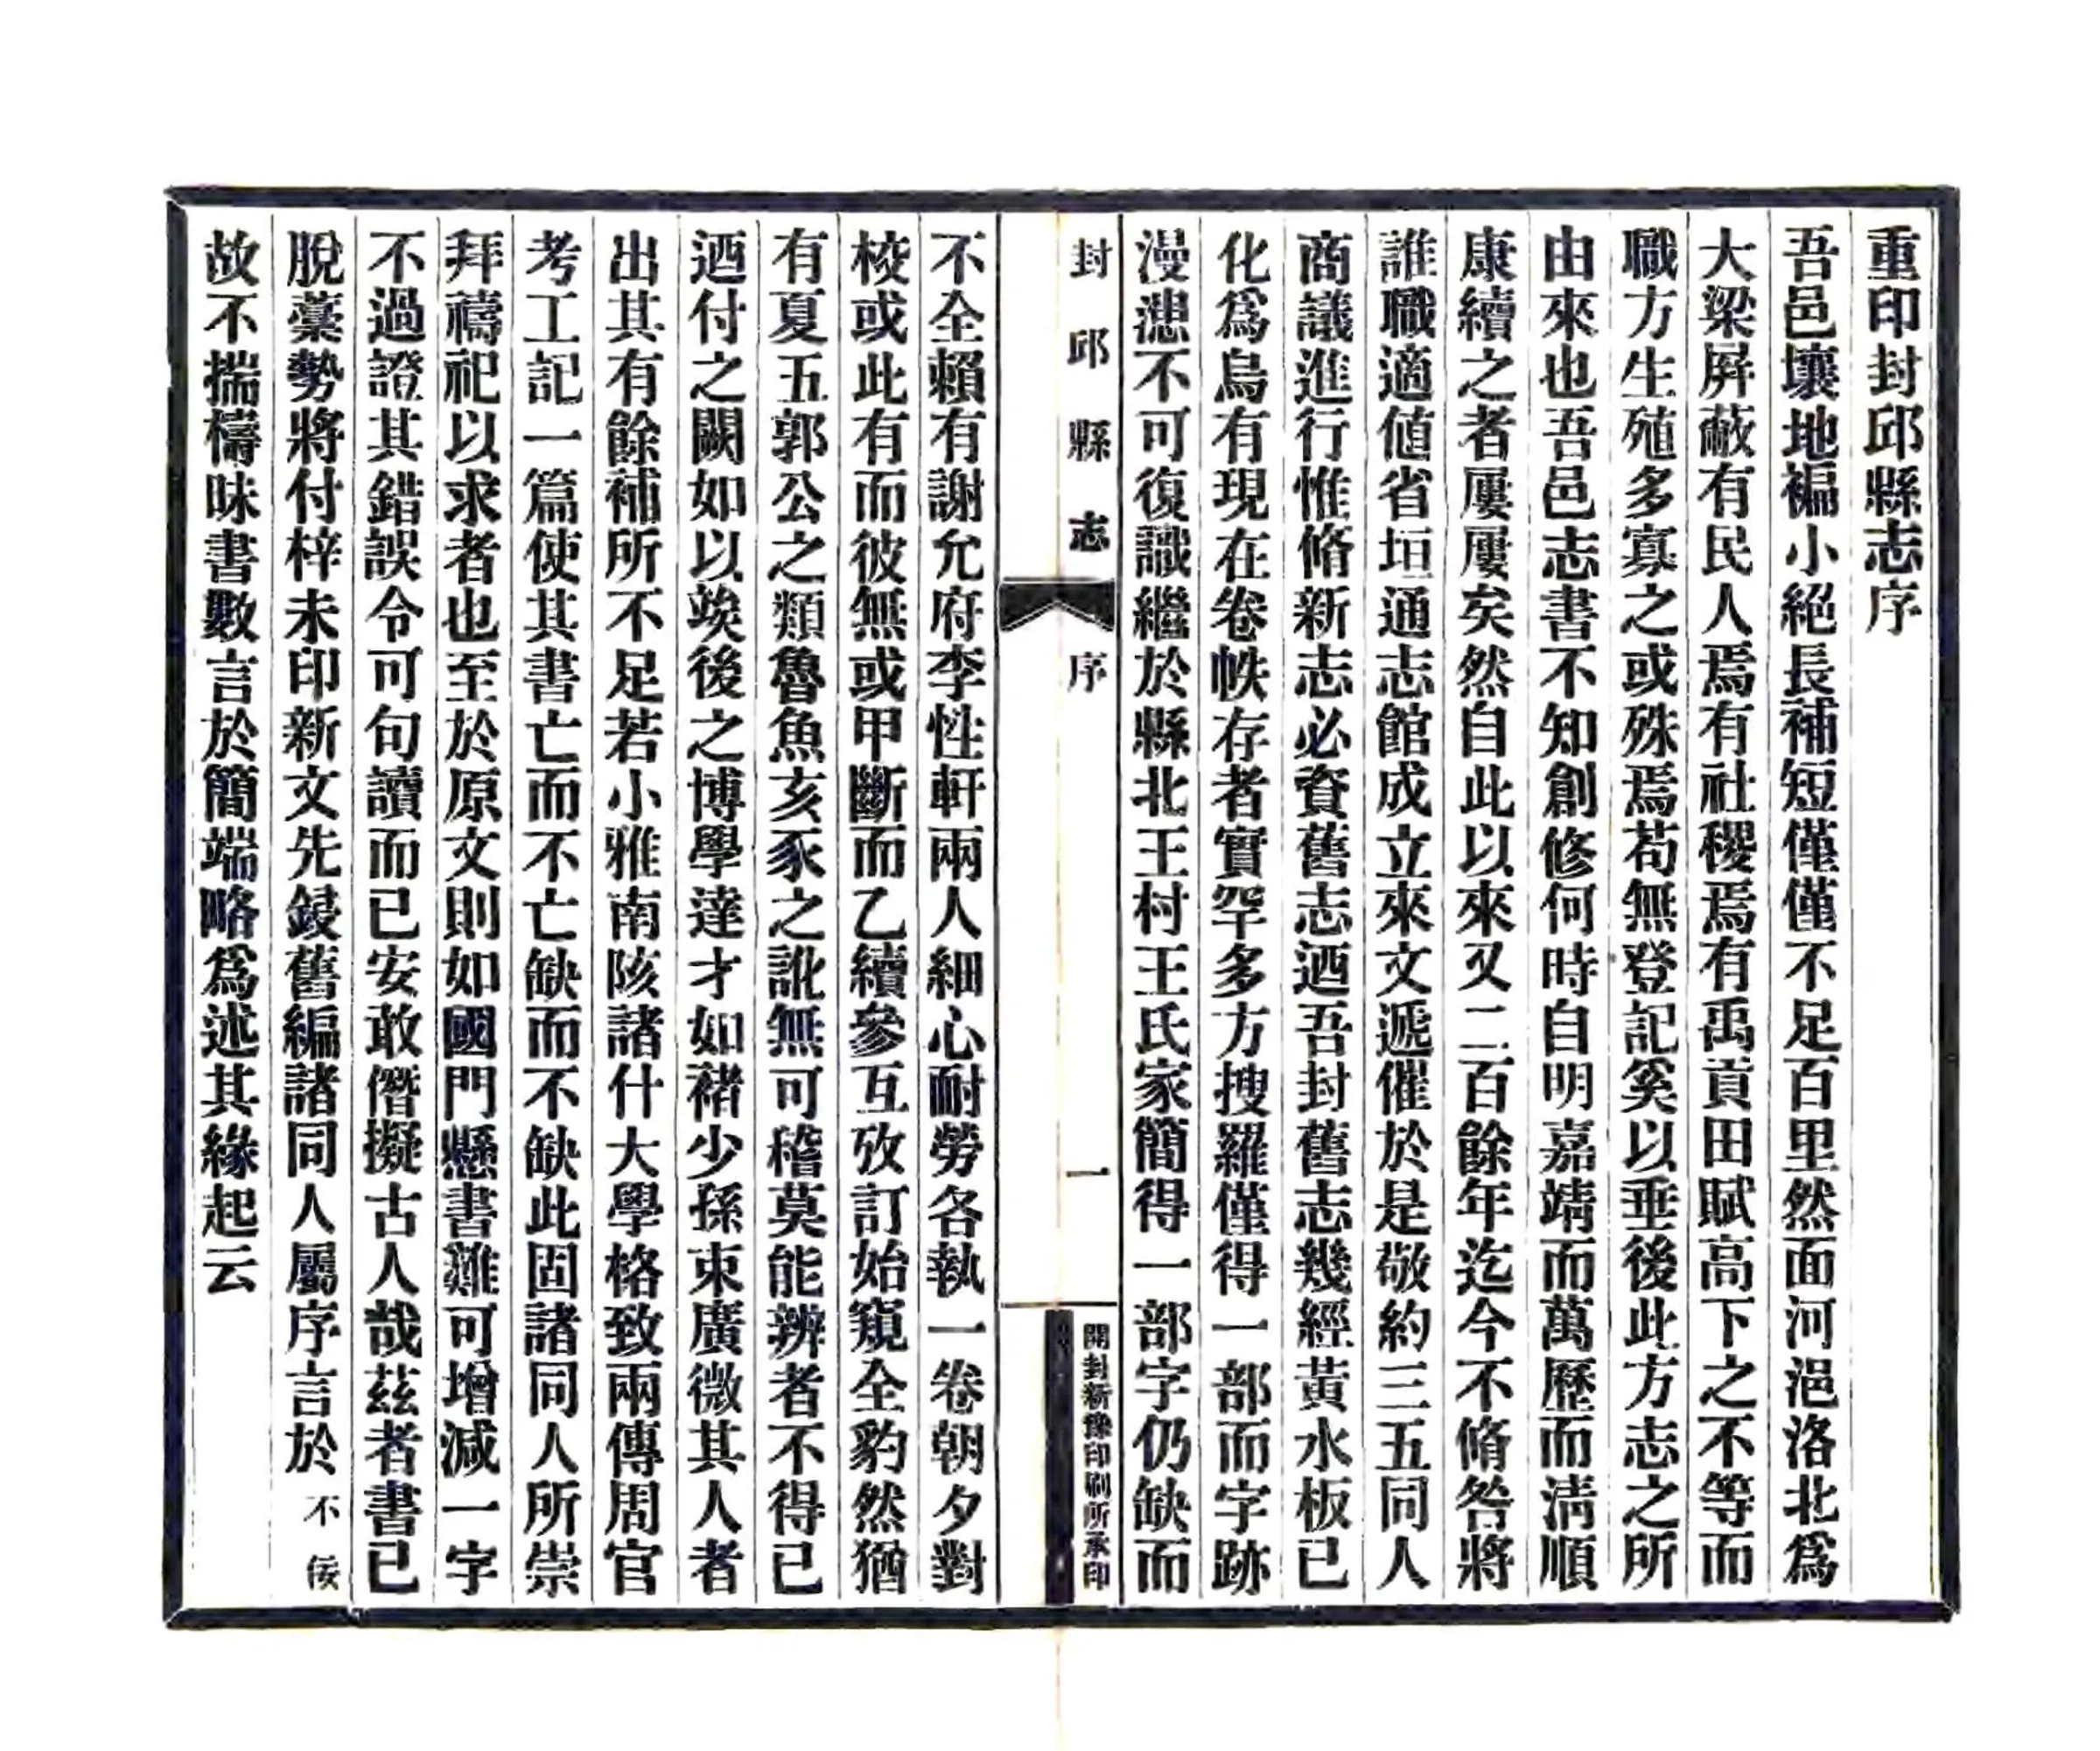 重印封邱縣志序
吾邑壤地褊小絕長補短僅僅不足百里然面河浥洛北爲
大梁屏蔽有民人焉有社稷焉有禹貢田賦高下之不等而
職方生殖多寡之或殊焉苟無登記奚以垂後此方志之所
由來也吾邑志書不知創修何時自明嘉靖而萬歷而淸順
康續之者屢屢矣然自此以來又二百餘年迄今不脩咎將
誰職適値省垣通志館成立來文遞催於是敬約三五同人
商議進行惟脩新志必資舊志迺吾封舊志幾經黃水板已
化爲烏有現在卷帙存者實罕多方搜羅僅得一部而字跡
漫漶不可復識繼於縣北王村王氏家簡得一部字仍缺而
封邱縣志
序
一
開封新豫印刷所承印
不全賴有謝允府李性軒兩人細心耐勞各執一卷朝夕對
校或此有而彼無或甲斷而乙續參互攷訂始窺全豹然猶
有夏五郭公之類魯魚亥豕之訛無可稽莫能辨者不得已
迺付之闕如以竢後之博學達才如褚少孫束廣微其人者
出其有餘補所不足若小雅南陔諸什大學格致兩傳周官
考工記一篇使其書亡而不亡缺而不缺此固諸同人所崇
拜禱祀以求者也至於原文則如國門懸書難可增減一字
不過證其錯誤令可句讀而已安敢僭擬古人哉茲者書已
脫藁勢將付梓未印新文先鋟舊編諸同人屬序言於不佞
故不揣檮昧書數言於簡端略爲述其緣起云